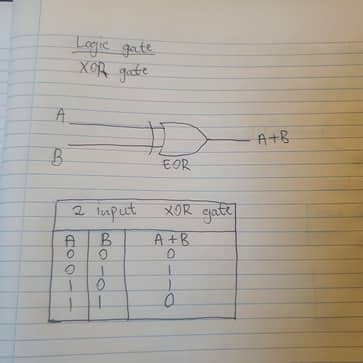 Logic gate
XOR gate
A
A+B
B
EOR
2 input XOR gate
A B A+B
0 0 0
0 1 1
1 0 1
1 1 0